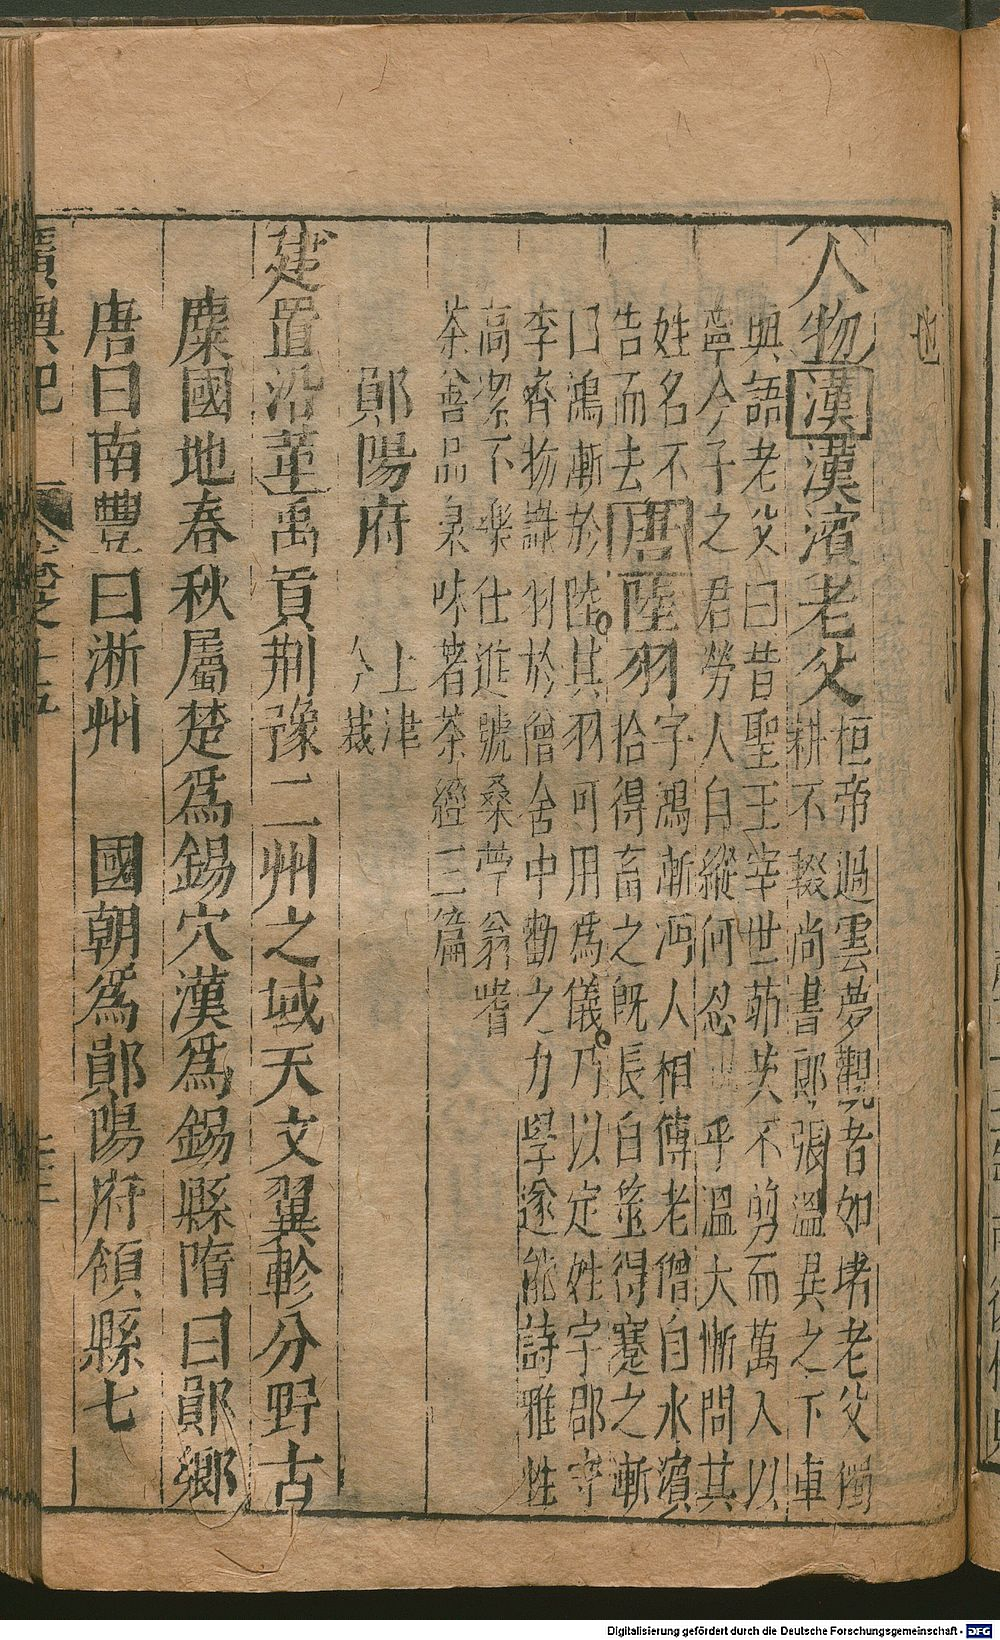 也
人物漢漢濱老父
桓帝過雲夢觀者如堵老父獨
耕不輟尚書郎張溫異之下車
與語老父曰昔聖王宰世茆茨不剪而萬人以
寧今子之君勞人自縱何忍 乎溫大慚問其
姓名不
告而去
唐陸羽
字鴻漸沔人相傳老僧自水濱
拾得畜之既長自筮得蹇之漸
曰鴻漸於陸其羽可用為儀乃以定姓字郡守
李齊物識羽於僧舍中勸之力學遂能詩雅性
高潔不樂仕進號桑苧翁嗜
茶善品泉味著茶經三篇
鄖陽府
上津
今裁
建置沿革禹貢荆豫二州之域天文翼軫分野古
麇國地春秋屬楚為錫穴漢為錫縣隋曰鄖鄉
唐曰南豐曰淅州 國朝為鄖陽府領縣七
廣輿記 卷之十五
Digitalisierung gefördert durch die Deutsche Forschungsgemeinschaft - DFG